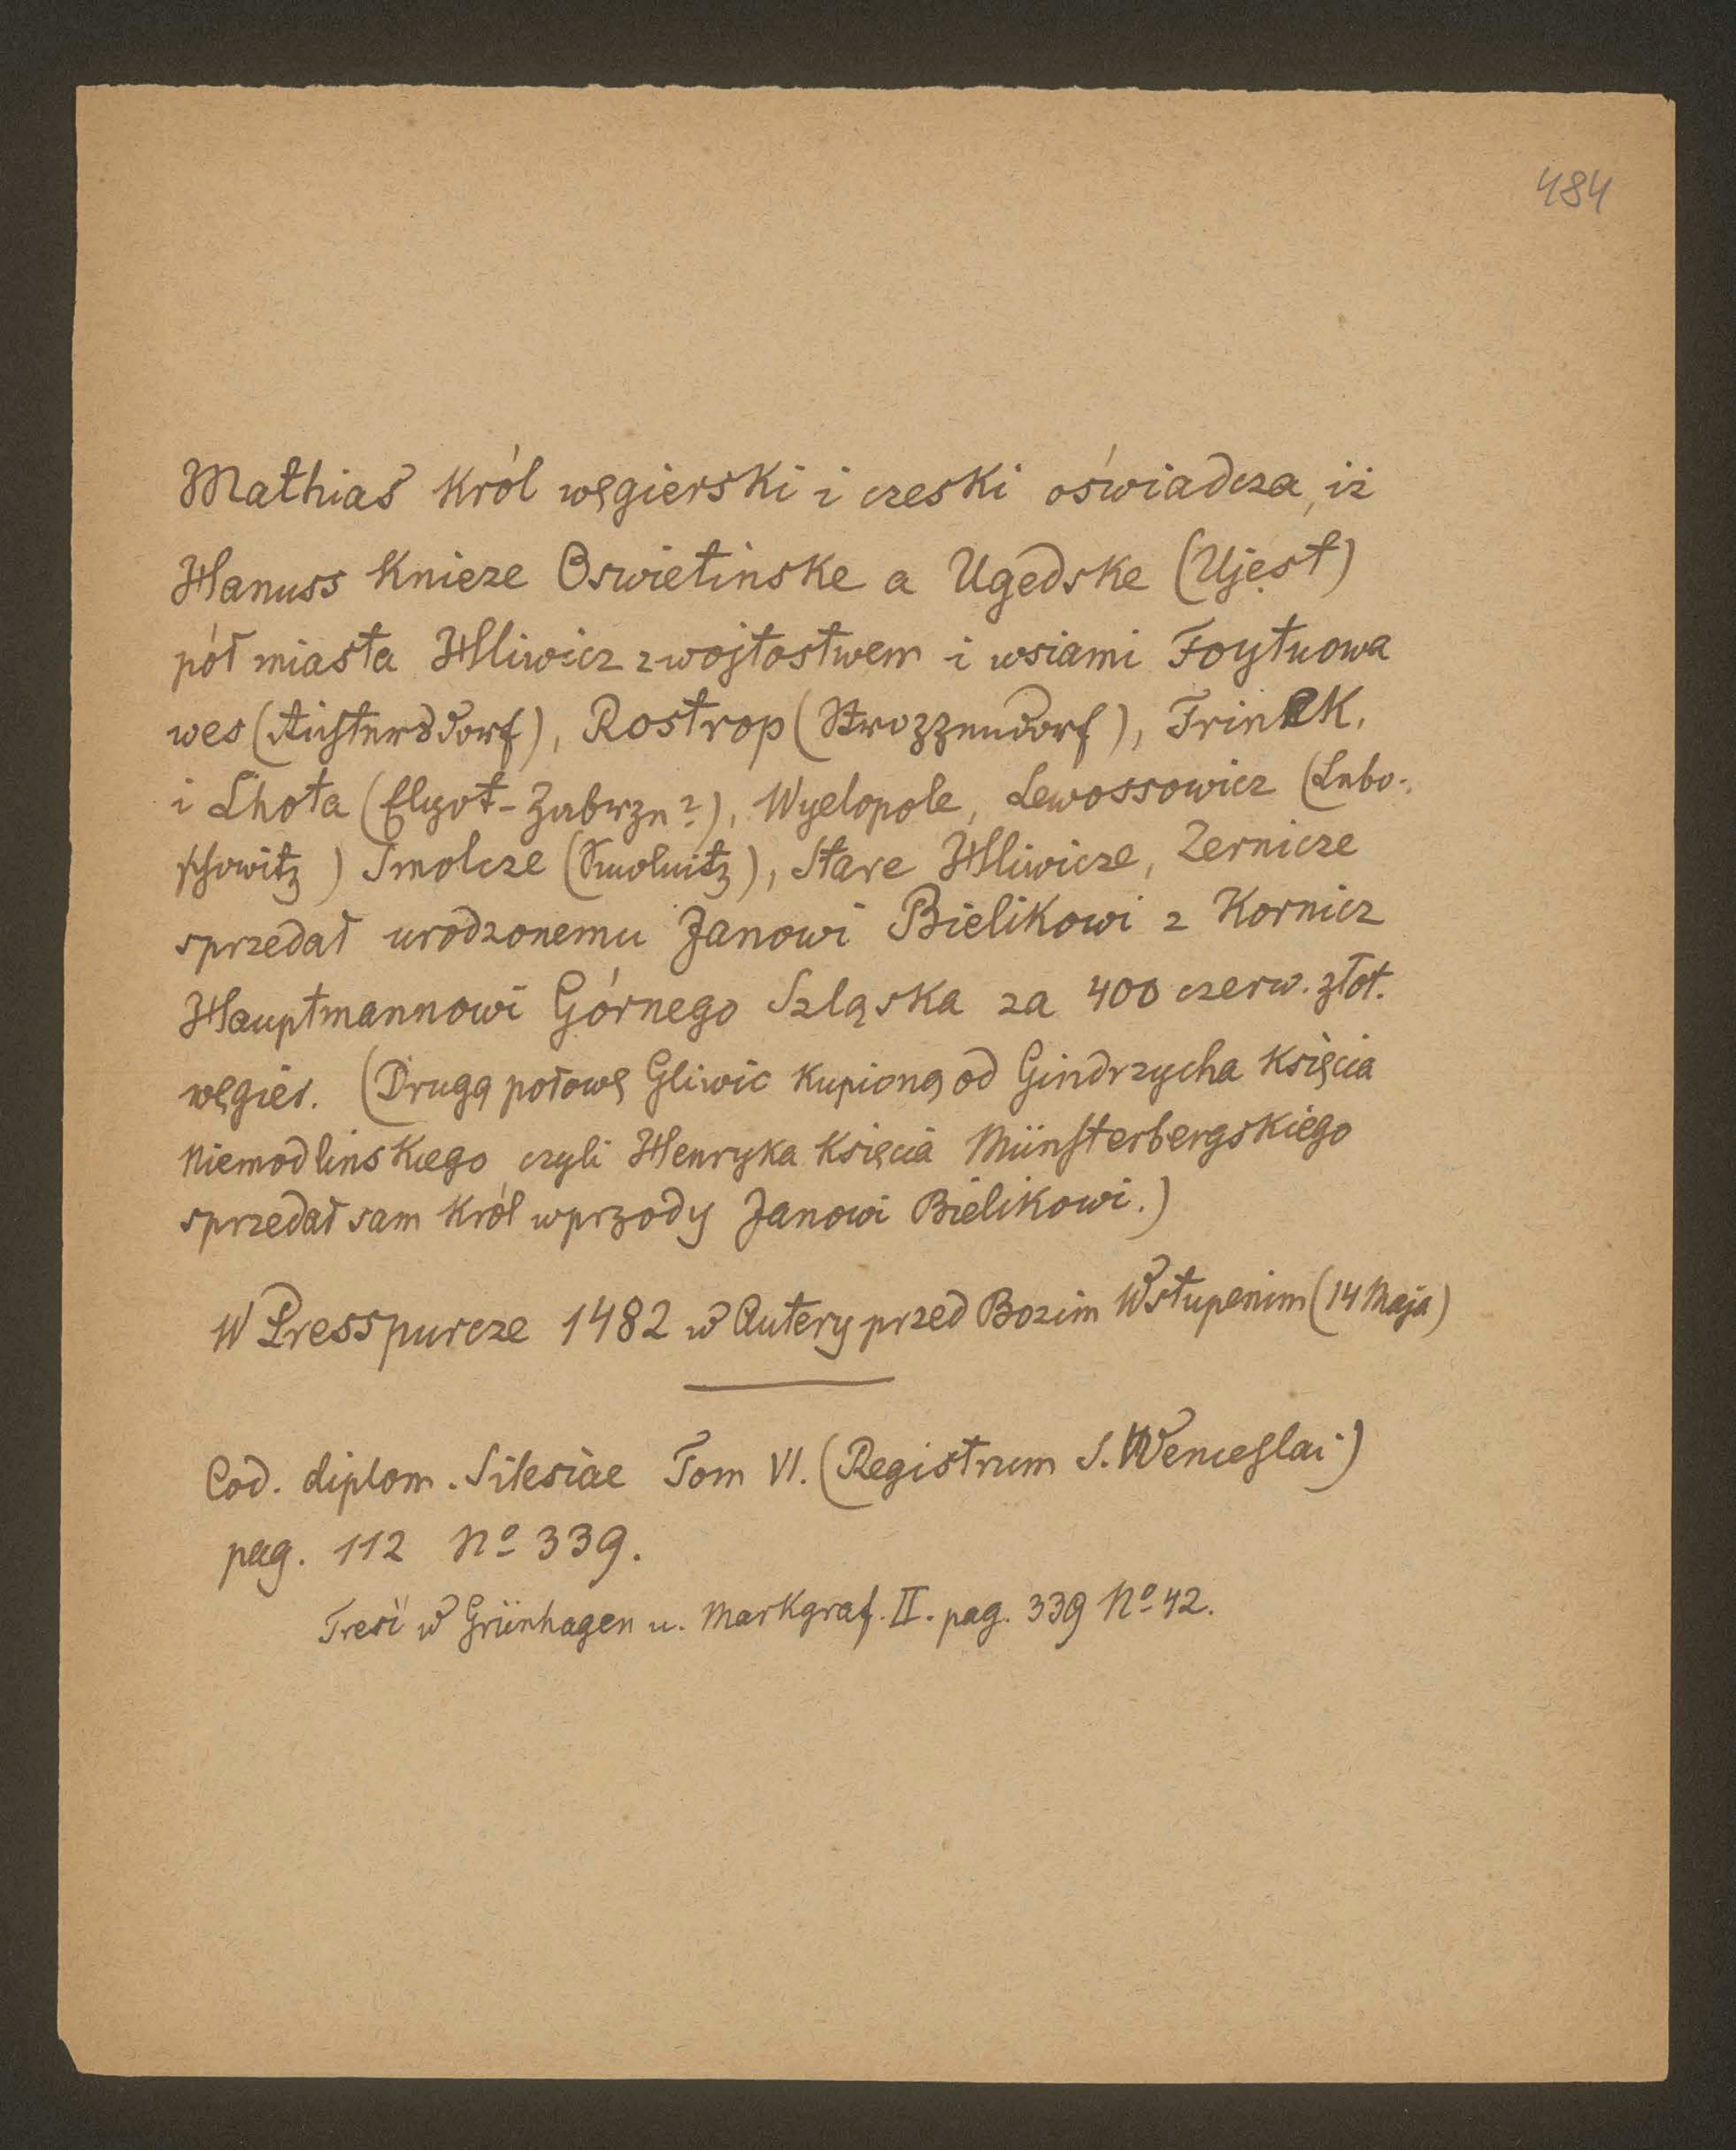 484
Mathiaš Król węgierski i czeski oświadcza, iż
Hanuss Knieze Oswietinske a Ugedske (Ujest)
pół miasta Hliwicz z wojtostwem i wsiami Foytuowa
wes (Richtersdorf), Rostrop (Strozzendorf), Trinek,
i Lhota (Elgot-Zabrze?), Wyelopole, Lewossowicz (Labo-
schowitz) Smolcze (Smolnitz), Stare Hliwicze, Zernicze
sprzedał urodzonemu Janowi Bielikowi z Kornicz
Hauptmannowi Górnego Szląska za 400 czerw. złot.
węgier. (Drugą połowę Gliwic kupioną od Gindrzycha Księcia
Niemodlinskiego czyli Henryka Księcia Münsterbergskiego
sprzedał sam Król wprzody Janowi Bielikowi.)
W Presspurcze 1482 w Autery przed Bozim Wstupenim (14 Maja)
Cod. diplom. Silesiae Tom VI. (Registrum S. Wenceslai)
pag. 112 No 339.
Treść w Grünhagen u. Markgraf. II. pag. 339 No 42.